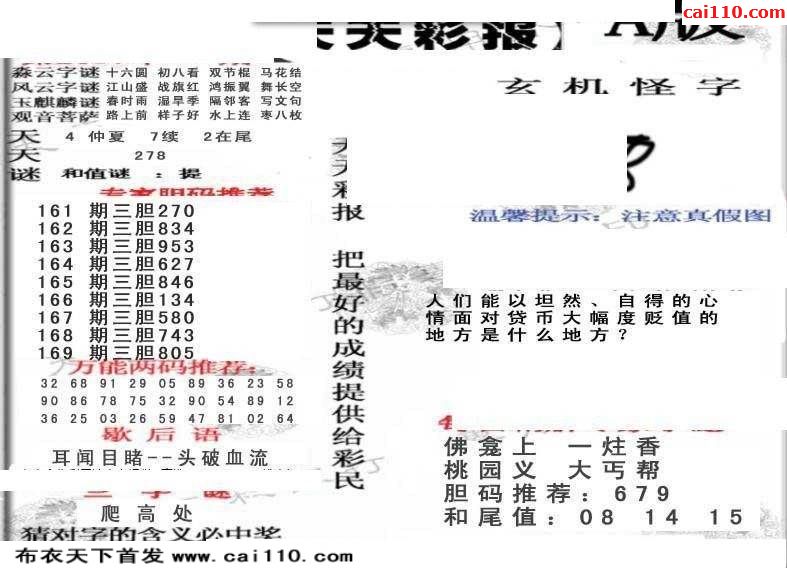 cai110.com
天天彩报
淼云字谜 十六圆 初八看 双节棍 马花结
风云字谜 江山盛 战旗红 鸿振翼 舞长空
玉麒麟谜 春时雨 湿旱季 隔邻客 写文句
观音菩萨 路上前 样子好 水上连 枣八枚
天 4 仲夏 7续 2在尾
天 278
谜 和值谜 : 提
专家胆码推荐
161 期三胆270
162 期三胆834
163 期三胆953
164 期三胆627
165 期三胆846
166 期三胆134
167 期三胆580
168 期三胆743
169 期三胆805
万能两码推荐:
32 68 91 29 05 89 36 23 58
90 86 78 75 32 90 54 89 12
36 25 03 26 59 47 81 02 64
歇后语
耳闻目睹--头破血流
三字谜
爬高处
猜对字的含义必中奖
布衣天下首发 www.cai110.com
天天彩报 把最好的成绩提供给彩民
玄机怪字
温馨提示: 注意真假图
人们能以坦然、自得的心
情面对贷币大幅度贬值的
地方是什么地方?
佛龛上 一炷香
桃园义 大丐帮
胆码推荐: 679
和尾值: 08 14 15